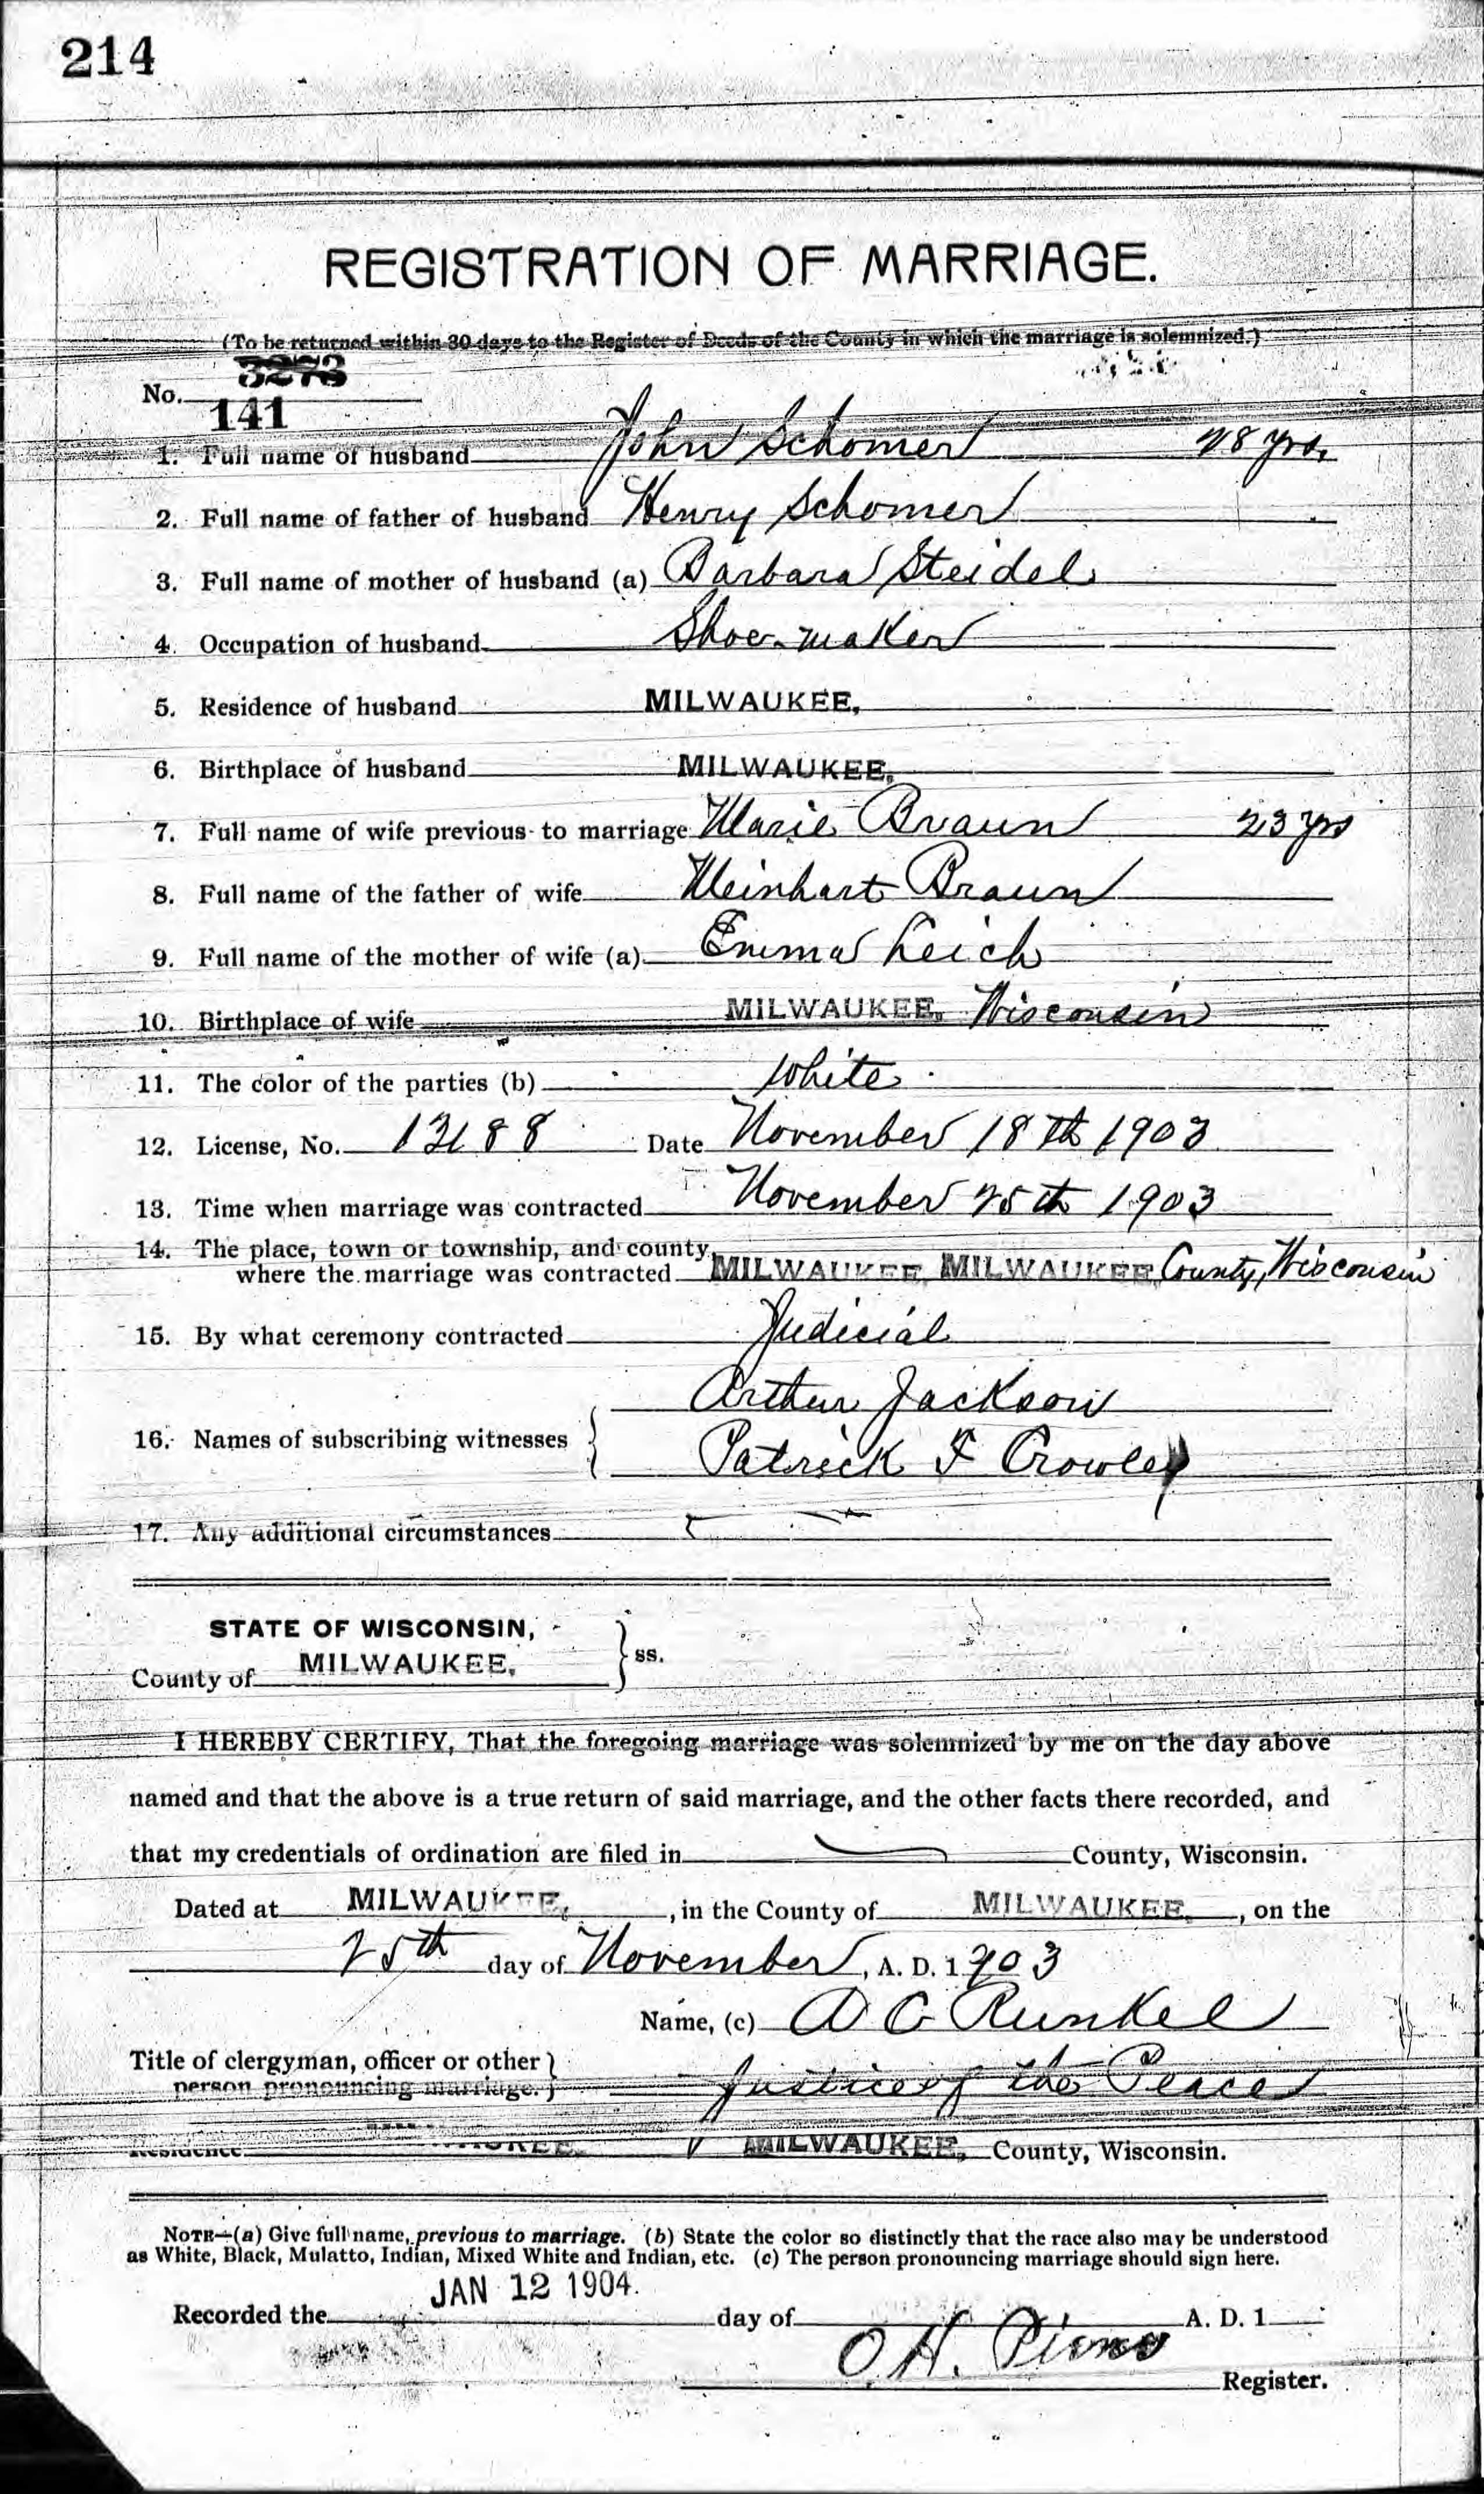 214
REGISTRATION OF MARRIAGE.
(To be returned within 30 days to the Register of Deeds of the County in which the marriage is solemnized.)
3273
No.
141
1. Full name of husband John Schomer 28 yrs.
2. Full name of father of husband Henry Schomer
3. Full name of mother of husband (a) Barbara Steidel
4. Occupation of husband Shoe-maker
5. Residence of husband MILWAUKEE,
6. Birthplace of husband MILWAUKEE,
7. Full name of wife previous to marriage Marie Braun 23 yrs
8. Full name of the father of wife Meinhart Braun
9. Full name of the mother of wife (a) Emma Leich
10. Birthplace of wife MILWAUKEE, Wisconsin
11. The color of the parties (b) White
12. License, No. 13188 Date November 18th 1903
13. Time when marriage was contracted November 25th 1903
14. The place, town or township, and county
where the marriage was contracted MILWAUKEE, MILWAUKEE, County, Wisconsin
15. By what ceremony contracted Judicial
Arthur Jackson
16. Names of subscribing witnesses
Patrick F Crowley
17. Any additional circumstances
STATE OF WISCONSIN,
County of MILWAUKEE, ss.
I HEREBY CERTIFY, That the foregoing marriage was solemnized by me on the day above
named and that the above is a true return of said marriage, and the other facts there recorded, and
that my credentials of ordination are filed in County, Wisconsin.
Dated at MILWAUKEE, , in the County of MILWAUKEE, , on the
25th day of November, A. D. 1903
Name, (c) A C Runkel
Title of clergyman, officer or other
person pronouncing marriage. Justice of the Peace
Residence MILWAUKEE, MILWAUKEE, County, Wisconsin.
NOTE—(a) Give full name, previous to marriage. (b) State the color so distinctly that the race also may be understood
as White, Black, Mulatto, Indian, Mixed White and Indian, etc. (c) The person pronouncing marriage should sign here.
JAN 12 1904.
Recorded the day of A. D. 1
O. H.
Register.